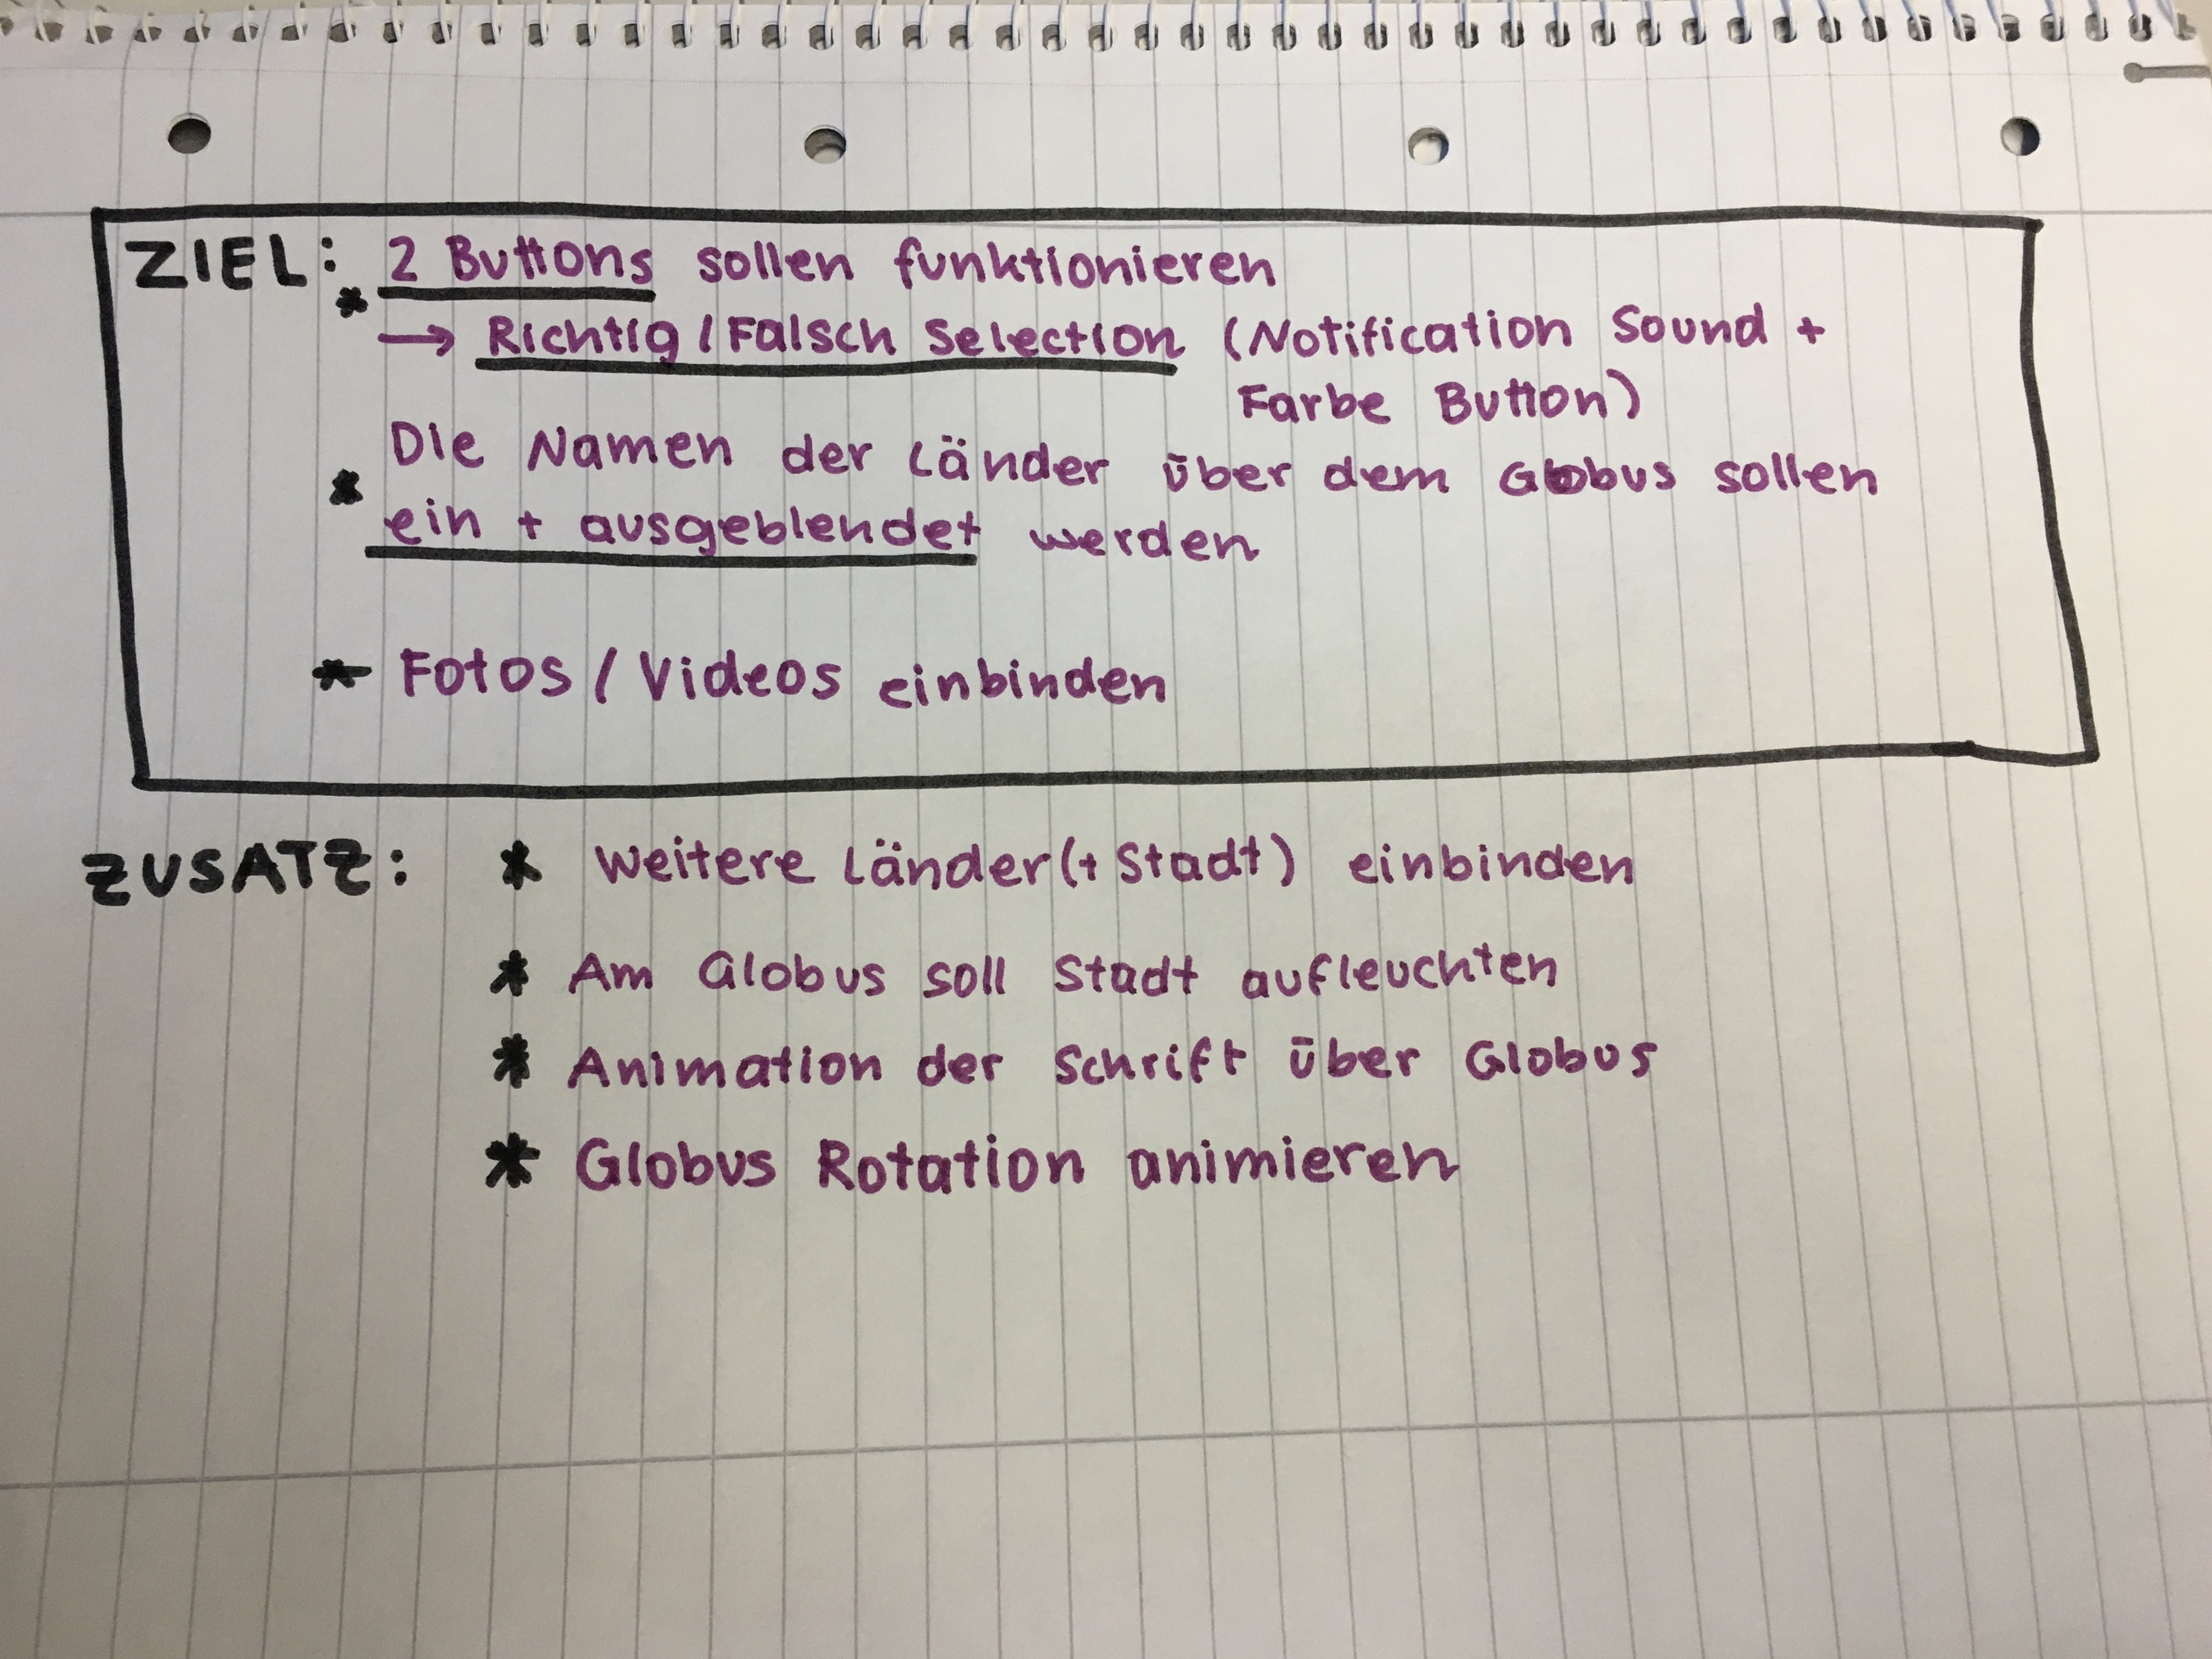 ZIEL: * 2 Buttons sollen funktionieren
→ Richtig / Falsch Selection (Notification Sound +
Farbe Button)
* Die Namen der Länder über dem Globus sollen
ein + ausgeblendet werden
* Fotos / Videos einbinden
ZUSATZ: * Weitere Länder (+ Stadt) einbinden
* Am Globus soll Stadt aufleuchten
* Animation der Schrift über Globus
* Globus Rotation animieren